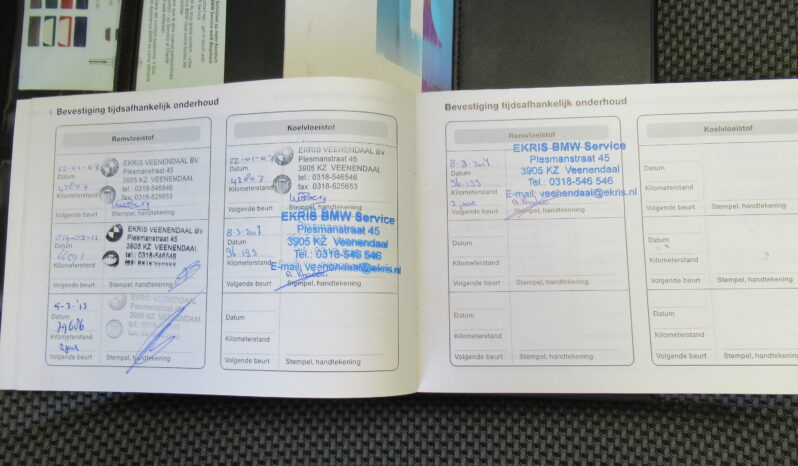 Bevestiging tijdsafhankelijk onderhoud
Remvloeistof
22-01-07
Datum
42807
Kilometerstand
Volgende beurt
EKRIS VEENENDAAL BV
Plesmanstraat 45
3905 KZ VEENENDAAL
tel.: 0318-546546
fax: 0318-525653
Stempel, handtekening
Datum
Kilometerstand
Volgende beurt
EKRIS VEENENDAAL BV
Plesmanstraat 45
3905 KZ VEENENDAAL
tel.: 0318-546546
Stempel, handtekening
5-3-'13
Datum
79606
Kilometerstand
2 jaar
Volgende beurt
EKRIS VEENENDAAL
Plesmanstraat 45
3905 KZ VEENENDAAL
Stempel, handtekening
Koelvloeistof
22-01-07
Datum
42807
Kilometerstand
Volgende beurt
EKRIS VEENENDAAL BV
Plesmanstraat 45
3905 KZ VEENENDAAL
tel.: 0318-546546
fax: 0318-525653
Stempel, handtekening
Datum
96.193
Kilometerstand
Volgende beurt
EKRIS BMW Service
Plesmanstraat 45
3905 KZ Veenendaal
Tel.: 0318-546 546
E-mail: veenendaal@ekris.nl
Stempel, handtekening
Datum
Kilometerstand
Volgende beurt
Stempel, handtekening
Bevestiging tijdsafhankelijk onderhoud
Remvloeistof
Datum
96.193
Kilometerstand
2 jaar
Volgende beurt
EKRIS BMW Service
Plesmanstraat 45
3905 KZ Veenendaal
Tel.: 0318-546 546
E-mail: veenendaal@ekris.nl
Stempel, handtekening
Datum
Kilometerstand
Volgende beurt
Stempel, handtekening
Datum
Kilometerstand
Volgende beurt
Stempel, handtekening
Koelvloeistof
Datum
Kilometerstand
Volgende beurt
Stempel, handtekening
Datum
Kilometerstand
Volgende beurt
Stempel, handtekening
Datum
Kilometerstand
Volgende beurt
Stempel, handtekening